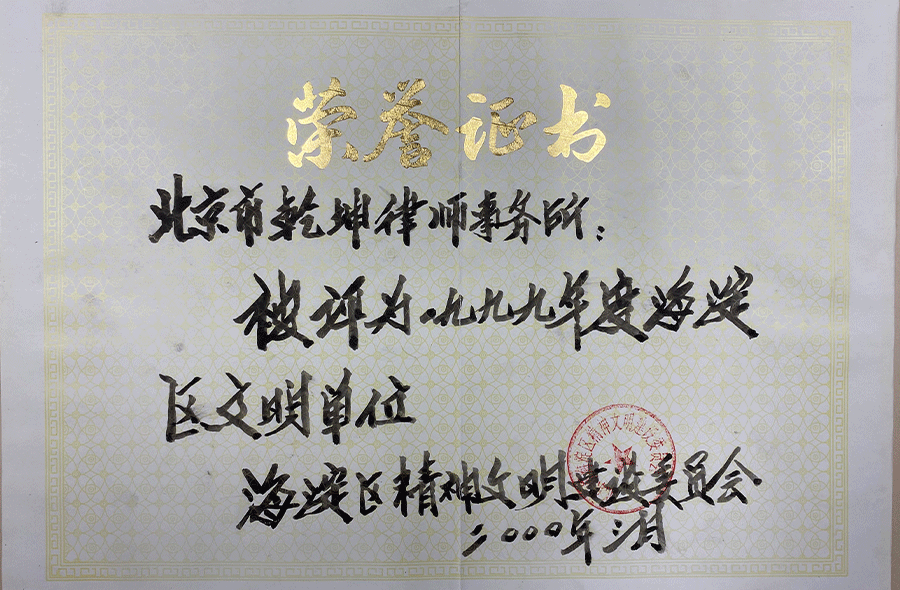 荣誉证书
北京市乾坤律师事务所：
被评为一九九九年度海淀
区文明单位
海淀区精神文明建设委员会
二〇〇〇年三月
海淀区精神文明建设委员会